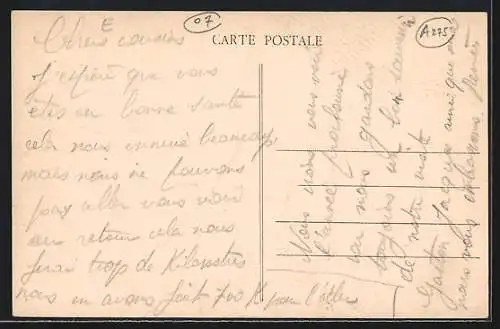 E
07
A275
CARTE POSTALE
Chers cousins
J'espère que vous
êtes en bonne santé
cela nous ennuie beaucoup
mais nous ne pouvons
pas aller vous voir
au retour cela nous
ferai trop de Kilomètres
nous en avons fait 700 K pour l'aller
Nous irons vous voir
l'année prochaine
car nous gardons
toujours un bon souvenir
de notre visite
Gaston Jacques ainsi que moi
nous vous embrassons